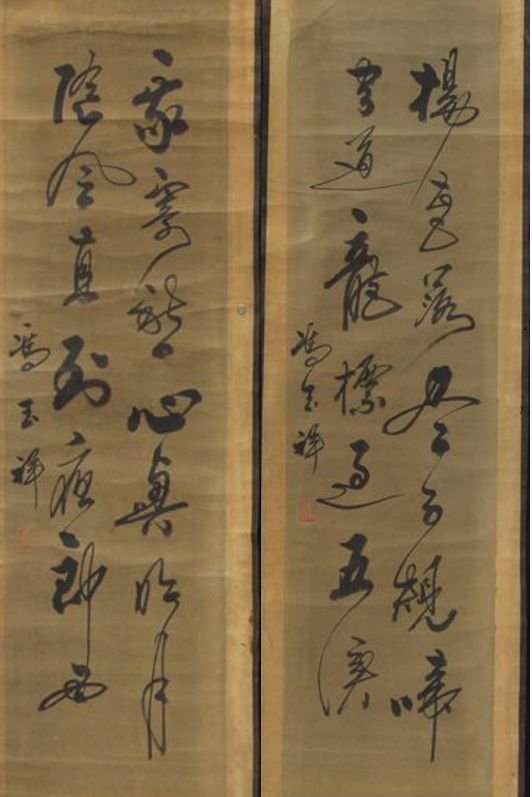 楊花落盡子規啼
聞道龍標過五溪
馮玉祥
我寄愁心與明月
隨風直到夜郎西
馮玉祥